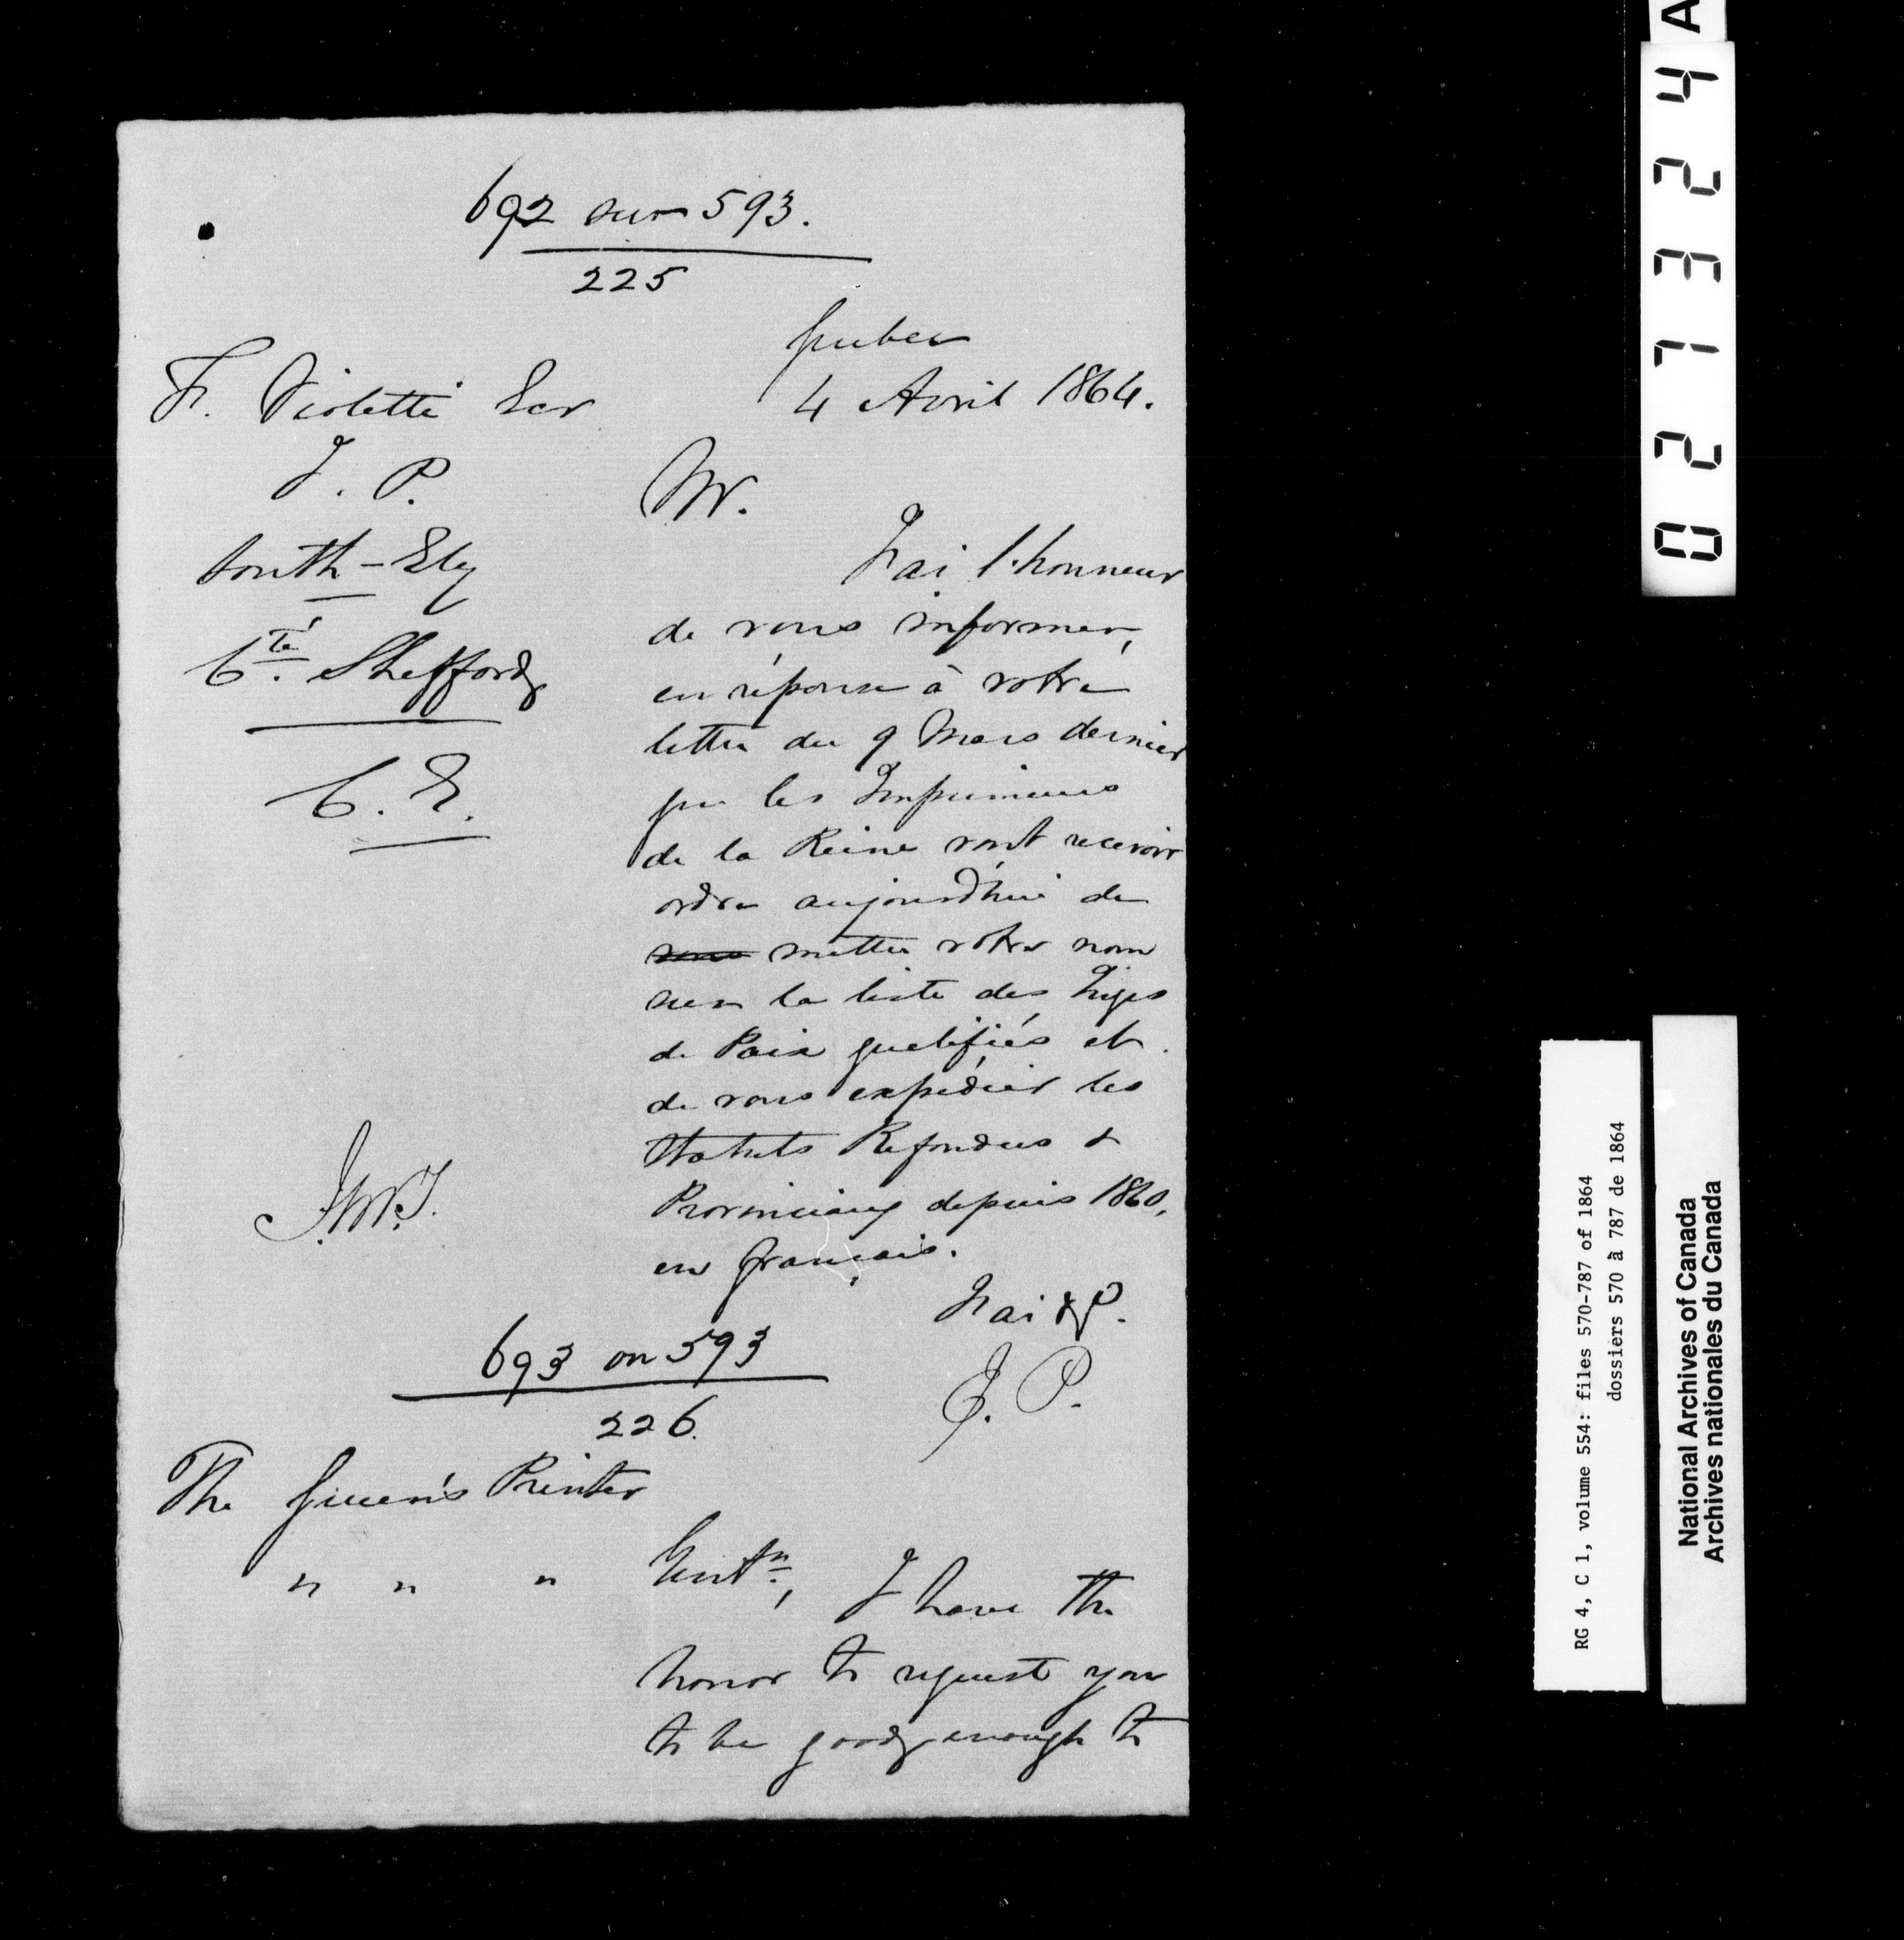 692 sur 593.
225
Quebec
4 Avril 1864.
F. Violetti Ecr
J. P.
South-Ely
Cté. Shefford
C. E.
Mr.
J'ai l'honneur
de vous informer,
en réponse à votre
lettre du 9 Mars dernier
que les Imprimeurs
de la Reine vont recevoir
ordre aujourd'hui de
vous mettre votre nom
sur la liste des Juges
de Paix qualifiés et
de vous expédier les
Statuts Refondus &
Provinciaux depuis 1860,
en français.
J'ai &c.
E. P.
693 on 593
226.
The Queen's Printer
" " "
Gentn.,
I have the
honor to request you
to be good enough to
A 027324
RG 4, C 1, volume 554: files 570-787 of 1864
dossiers 570 à 787 de 1864
National Archives of Canada
Archives nationales du Canada